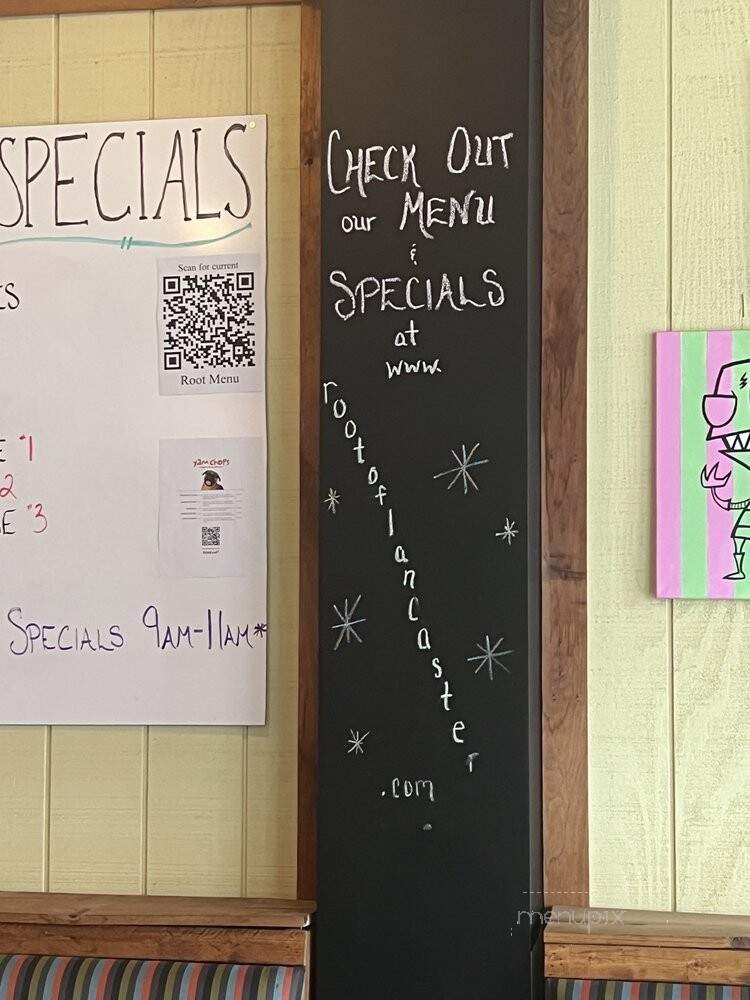 SPECIALS
Scan for current
Root Menu
ES
E #1
2
SE #3
yam chops
SPECIALS 9AM-11AM*
CHECK OUT
our MENU
&
SPECIALS
at
www.
rootoflancaster
.com
menupix